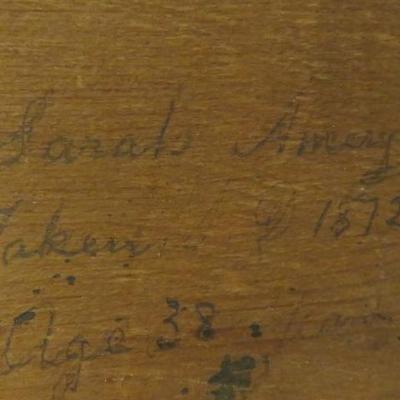 Sarah Amery
Taken 1872
Age 38